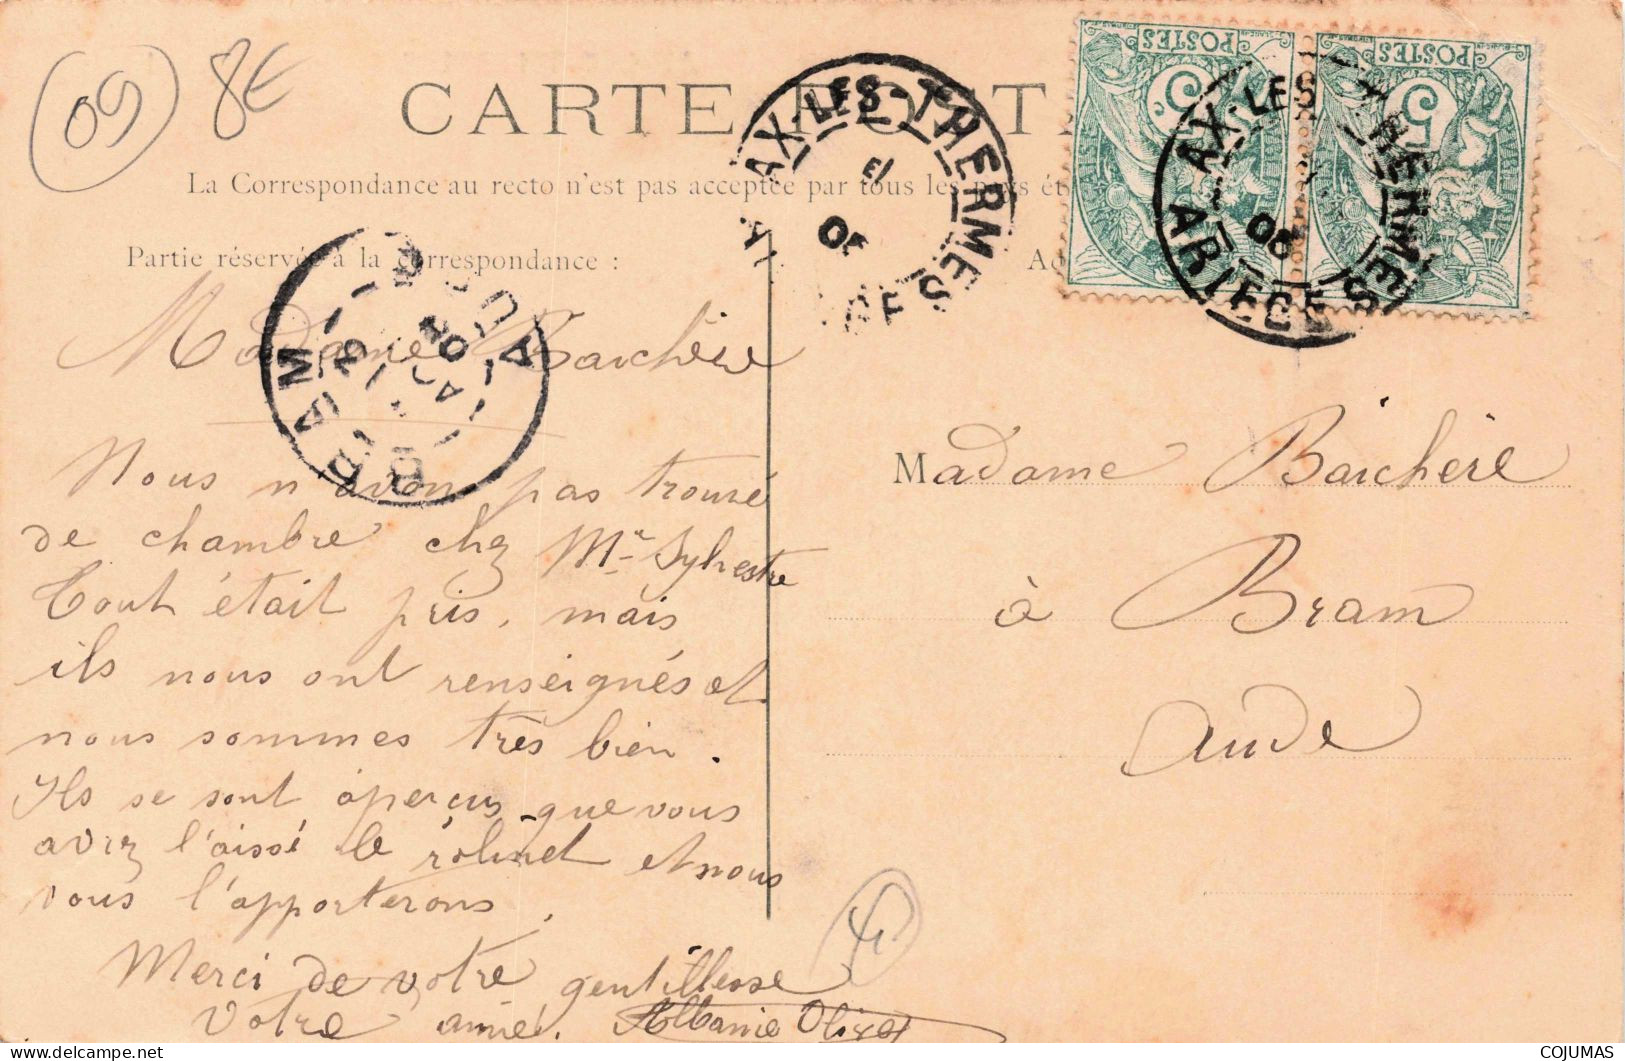 09 8E
CARTE POSTA
La Correspondance au recto n'est pas acceptée par tous les pays ét
Partie réservée à la correspondance :
Ad
AX-LES-THERMES
E
05
POSTES
POSTES
5
5
AX-LES-THERMES
05
ARIEGE
BRAM
AUDE
Madame Baichère
Nous n'avons pas trouvé
de chambre chez Mr Sylvestre
Tout était pris, mais
ils nous ont renseignés et
nous sommes très bien.
Ils se sont aperçus que vous
avez l'aissé le robinet et nous
vous l'apporterons.
Merci de votre gentillesse
Votre amie. Albanie Olivet
Madame Baichère
à Bram
Aude
4
COJUMAS